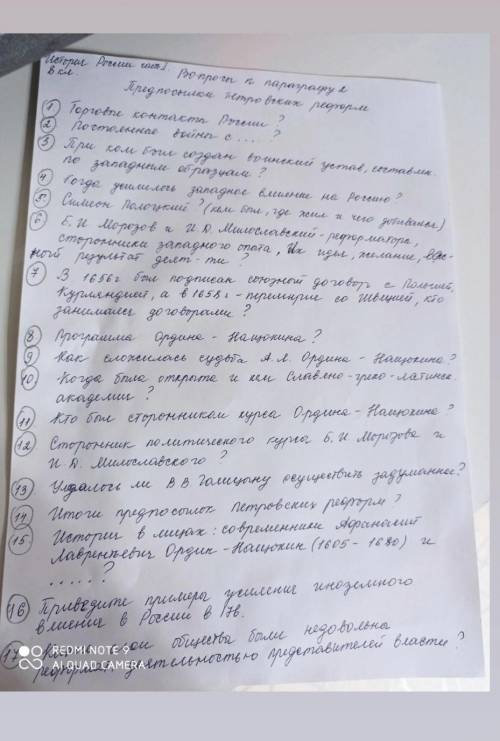 История России часть 1. Вопросы к параграфу 2
8 кл. Предпосылки петровских реформ
1 Торговые контакты России?
2 Постоянные войны с ... ?
3 При ком был создан воинский устав, составлен.
по западным образцам?
4 Когда усилилось западное влияние на Россию?
5 Симеон Полоцкий? (кем был, где жил и чего добивался)
6 Б. И Морозов и И. Д. Милославский - реформаторы,
сторонники западного опыта, Их идея, желание,
ный результат деят-ти?
7 В 1656г был подписан союзной договор с Польшей,
Курляндией, а в 1658г - перемирие со Швецией, кто
занимался договорами?
8 Программа Ордина - Нащокина?
9 Как сложилась судьба А. Л. Ордина - Нащокина?
10 Когда была открыта и кем Славяно-греко-латинск.
академия?
11 Кто был сторонником курса Ордина - Нащокина?
12 Сторонник политического курса Б. И Морозова и
И. Д. Милославского?
13 Удалось ли В В Голицыну осуществить задуманное?
14 Итоги предпосылок Петровских реформ?
15 История в лицах: современники Афанасий
Лаврентьевич Ордин - Нащокин (1605 - 1680) и
.....?
16 Приведите примеры усиления иноземного
влияния в России в 17в.
17 общества были недовольна
деятельностью представителей власти?
REDMI NOTE 9
AI QUAD CAMERA